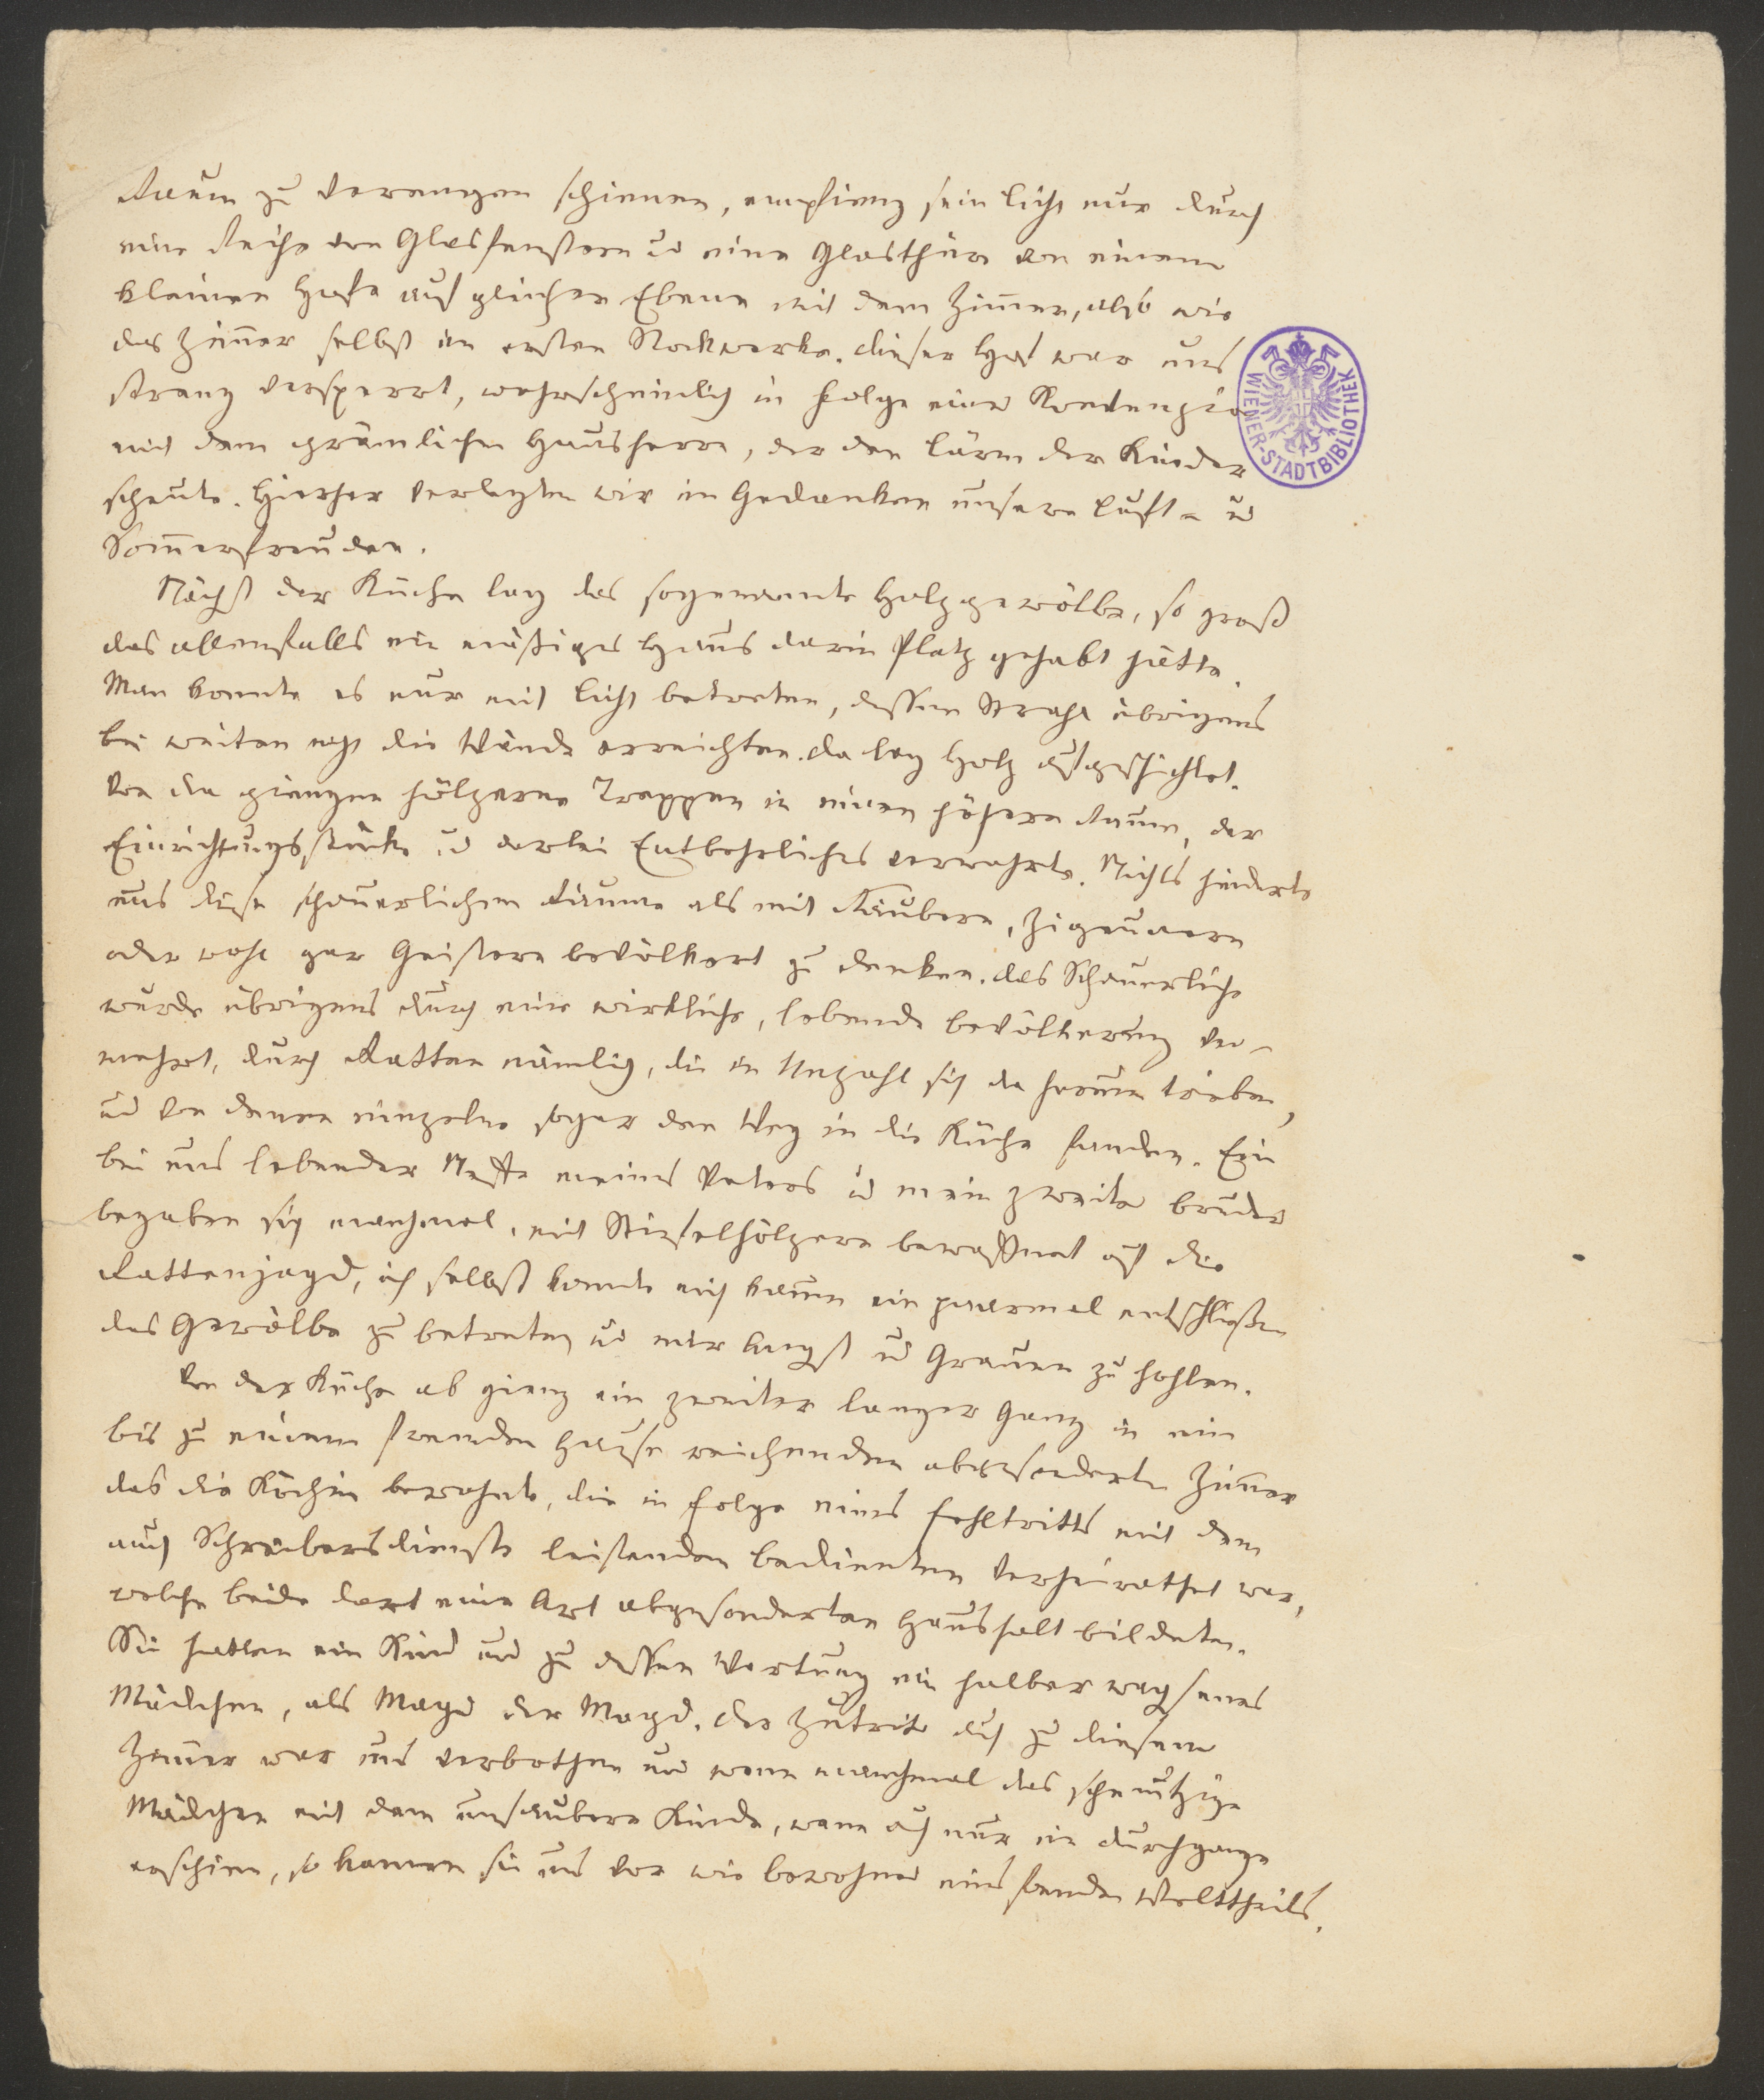 Raum zu verengen schienen, empfieng sein Licht nur durch
eine Reihe von Glasfenstern u eine Glasthüre von einem
kleinen Hofe auf gleicher Ebene mit dem Zimmer, also wie
das Zimmer selbst im ersten Stockwerke. Dieser Hof war uns
streng versperrt, wahrscheinlich in Folge einer Konvenzion
mit dem grämlichen Hausherrn, der den Lärm der Kinder
scheute. Hierher verlegten wir in Gedanken unsere Luft- u
Sommerfreuden.
Nächst der Küche lag das sogenannte Holzgewölbe, so groß
das allenfalls ein mäßiges Haus darin Platz gehabt hätte.
Man konnte es nur mit Licht betreten, dessen Strahl übrigens
bei weiten nicht die Wände erreichten. Da lag Holz aufgeschichtet.
Von da giengen hölzerne Treppen in einen höhern Raum, der
Einrichtungsstücke u derlei Entbehrliches verwahrte. Nichts hinderte
uns diese schauerlichen Räume als mit Räubern, Zigeunern
oder wohl gar Geistern bevölkert zu denken. Das Schauerliche
wurde übrigens durch eine wirkliche, lebende Bevölkerung ver-
mehrt, durch Ratten nämlich, die in Unzahl sich da herum trieben,
u von denen einzelne sogar den Weg in die Küche fanden. Ein
bei uns lebender Neffe meines Vaters u mein zweiter Bruder
begaben sich manchmal, mit Stiefelhölzern bewaffnet auf die
Rattenjagd, ich selbst konnte mich kaum ein paarmal entschließen
das Gewölbe zu betreten u mir Angst u Grauen zu hohlen.
Von der Küche ab gieng ein zweiter langer Gang in ein
bis zu einem fremden Hause reichenden abgesonderten Zimmer
das die Köchin bewohnte, die in Folge eines Fehltritts mit dem
auch Schreibersdienste leistenden Bedienten verheirathet war,
welche beide dort eine Art abgesonderten Haushalt bildeten.
Sie hatten ein Kind und zu dessen Wartung ein halberwachsenes
Mädchen, als Magd der Magd. Der Zutritt auch zu diesem
Zimmer war uns verbothen und wenn manchmal das schmutzige
Mädchen mit dem unsaubern Kinde, wenn auch nur im Durchgange
erschien, so kamen sie uns vor wie Bewohner eines fremden Welttheils.
WIENER-STADTBIBLIOTHEK